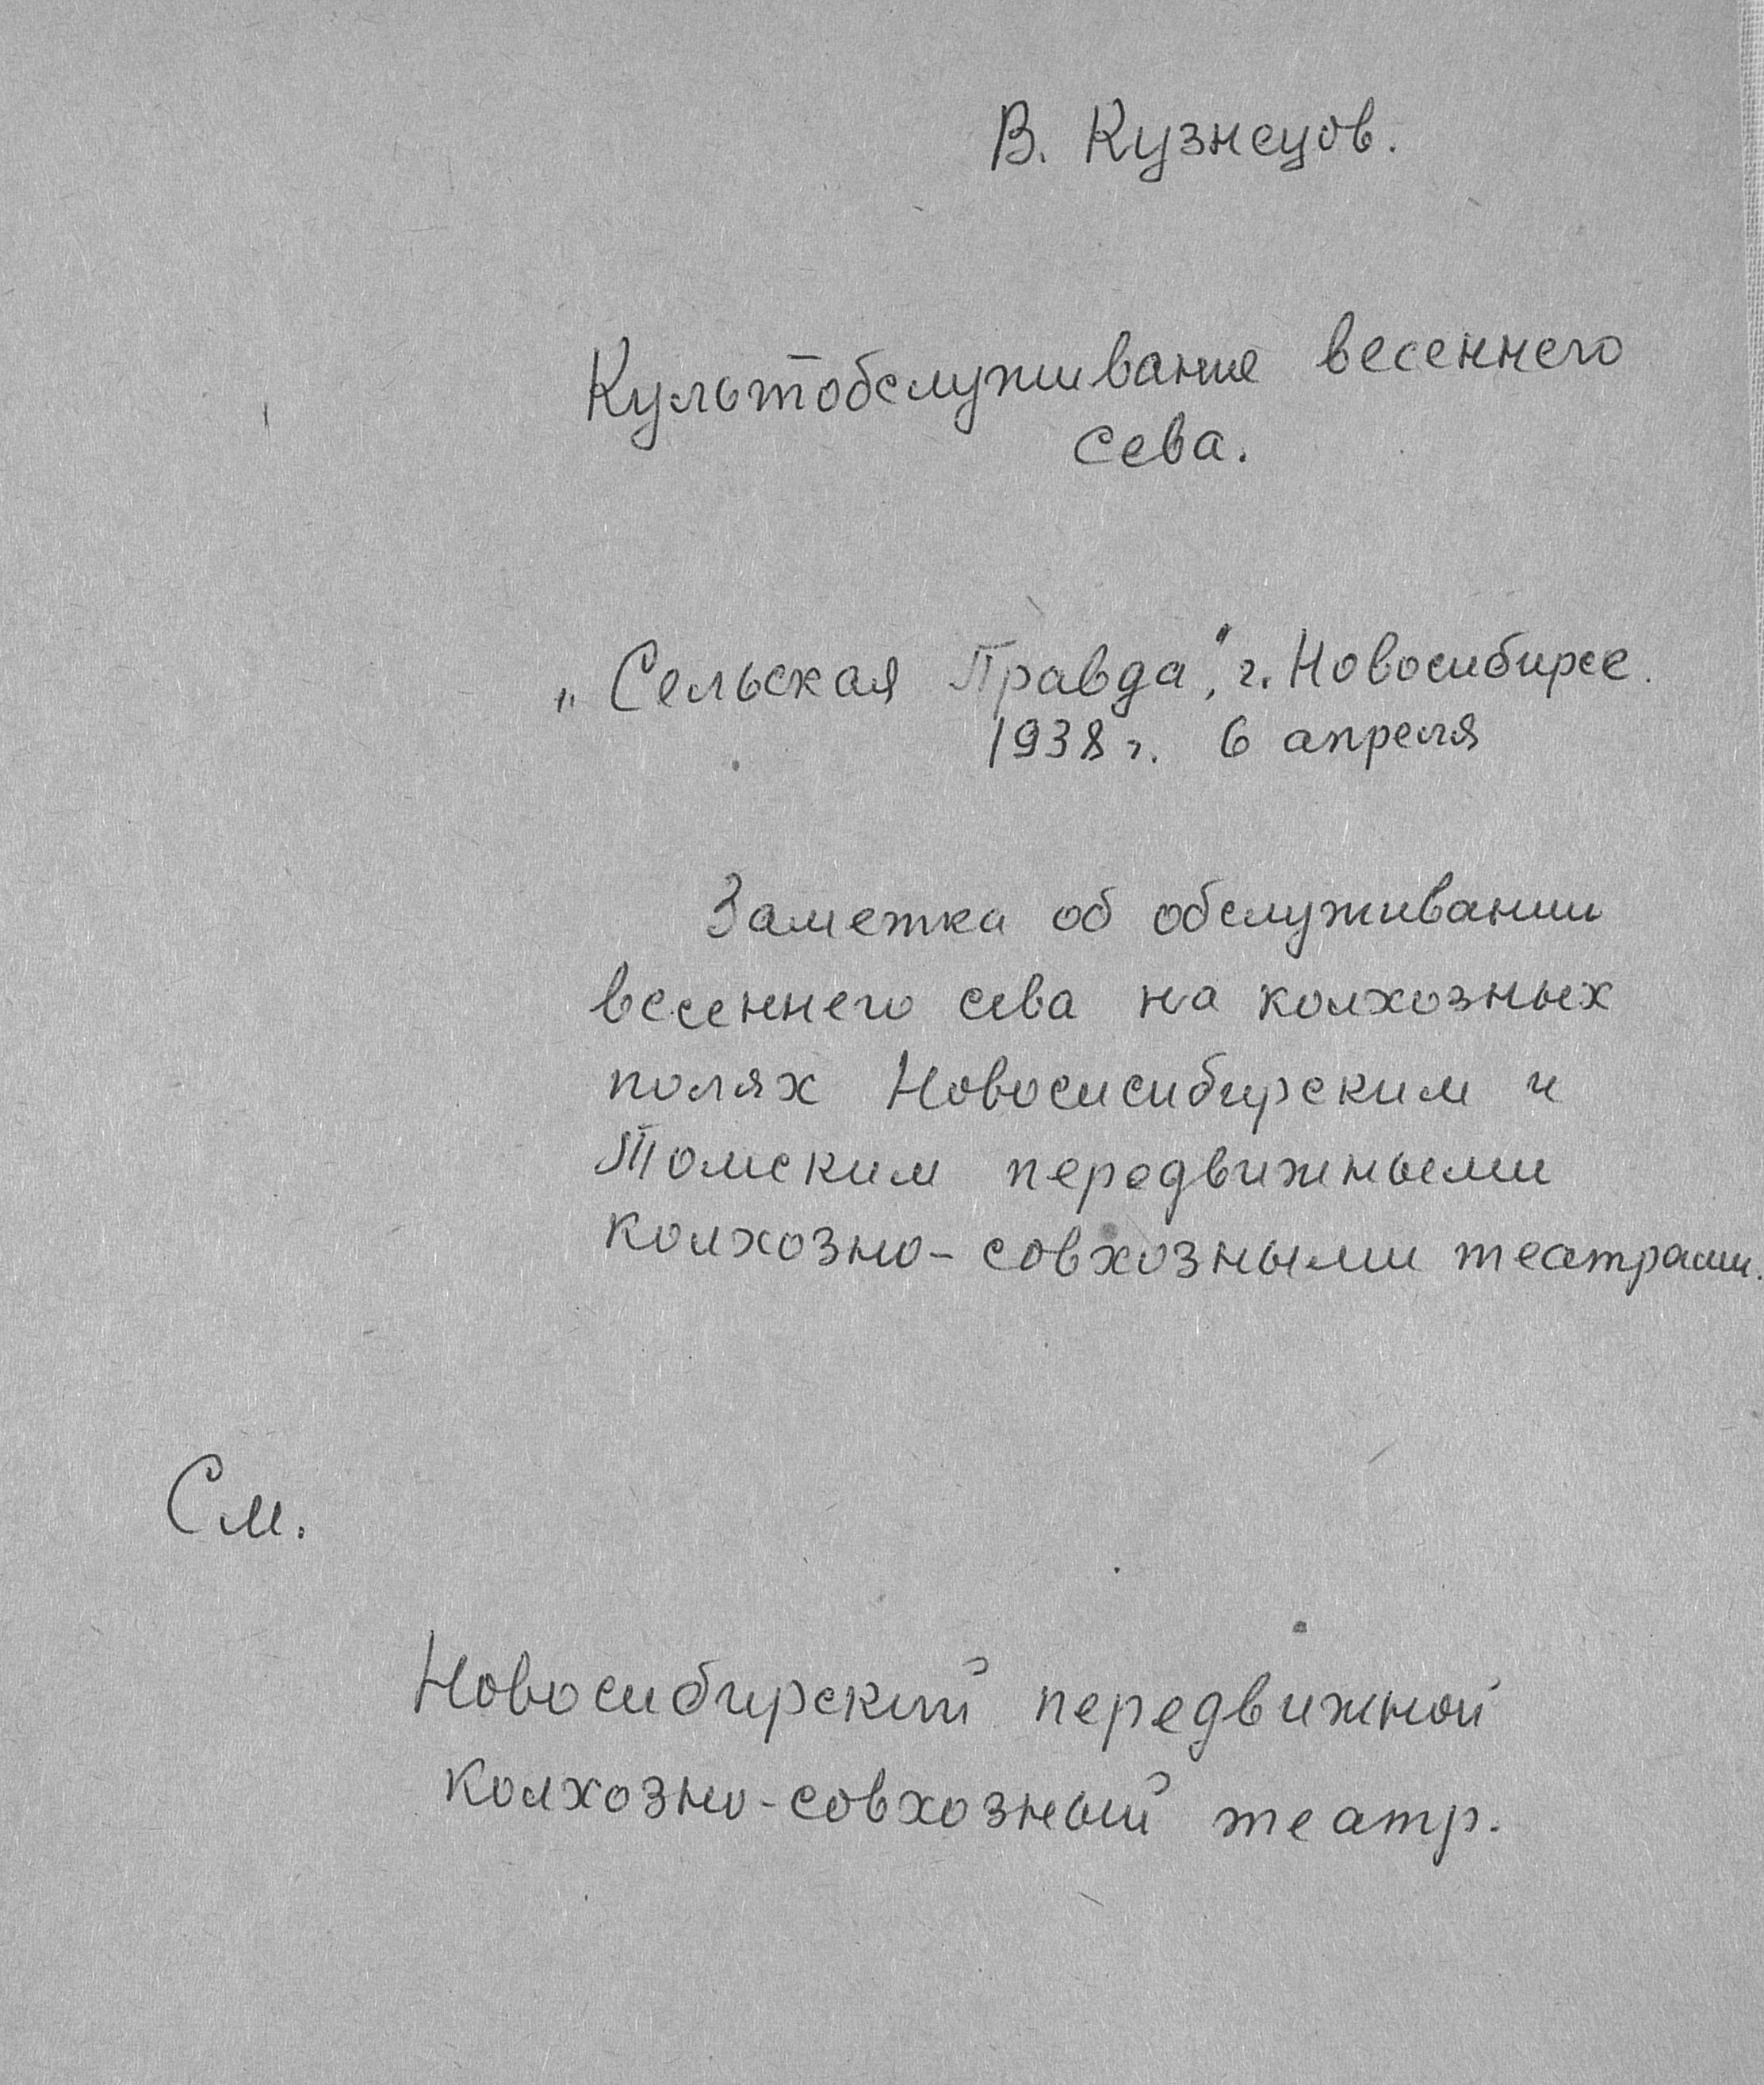 В. Кузнецов.
Культобслуживание весеннего
сева.
„Сельская Правда", г. Новосибирск.
1938 г. 6 апреля
Заметка об обслуживании
весеннего сева на колхозных
полях Новосисибирским и
Томским передвижными
колхозно-совхозными театрами.
См.
Новосибирский передвижной
колхозно-совхозный театр.